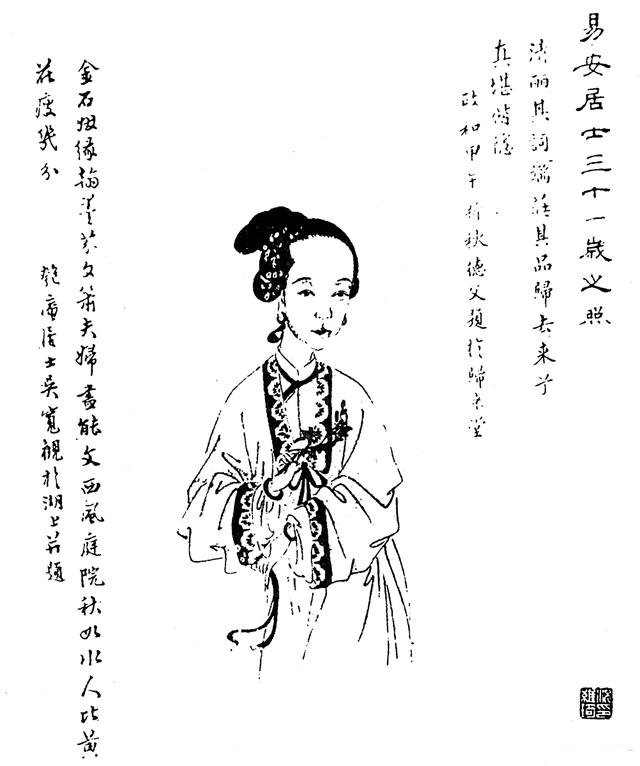 易安居士三十一歲之照
清麗其詞端莊其品歸去來兮
真堪偕隱
政和甲午新秋德父題於歸來堂
金石姻緣翰墨芬文簫夫婦盡能文西風庭院秋如水人比黃
花瘦幾分
匏庵居士吳寬觀於湖上并題